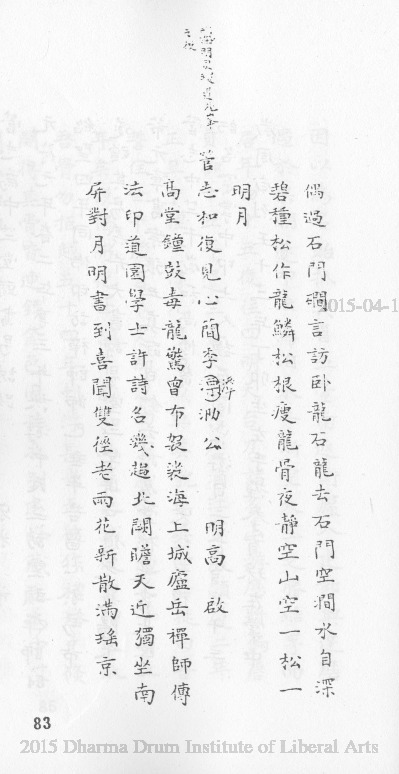 偶過石門磵言訪卧龍石龍去石門空澗水自深
碧種松作龍鱗松根瘦龍骨夜靜空山空一松一
明月
菅志和復見心蕳季潭泐公 明高啟
高堂鐘鼓毒龍驚曾布袈裟海上城廬岳禪師傳
法印道園學士許詩名幾超北闕瞻天近獨坐南
屏對月明書到喜聞雙徑老雨花新散滿瑤京
83
2015-04-1
2015 Dharma Drum Institute of Liberal Arts